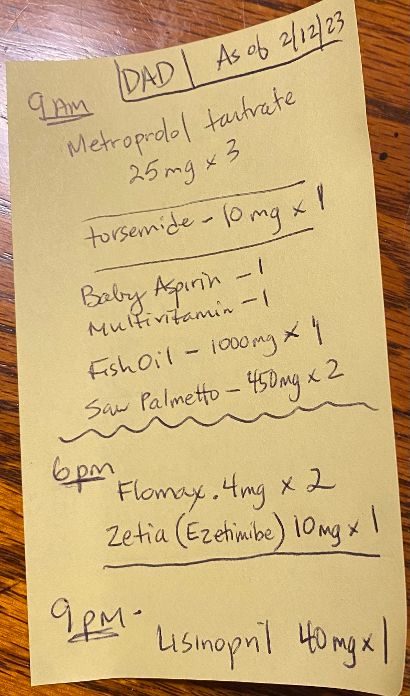 DAD As of 2/12/23
9 AM
Metroprolol tartrate
25mg x 3
torsemide - 10mg x 1
Baby Aspirin - 1
Multivitamin - 1
Fish Oil - 1000mg x 1
Saw Palmetto - 450mg x 2
6pm
Flomax .4mg x 2
Zetia (Ezetimibe) 10mg x 1
9pm-
Lisinopril 40mg x 1